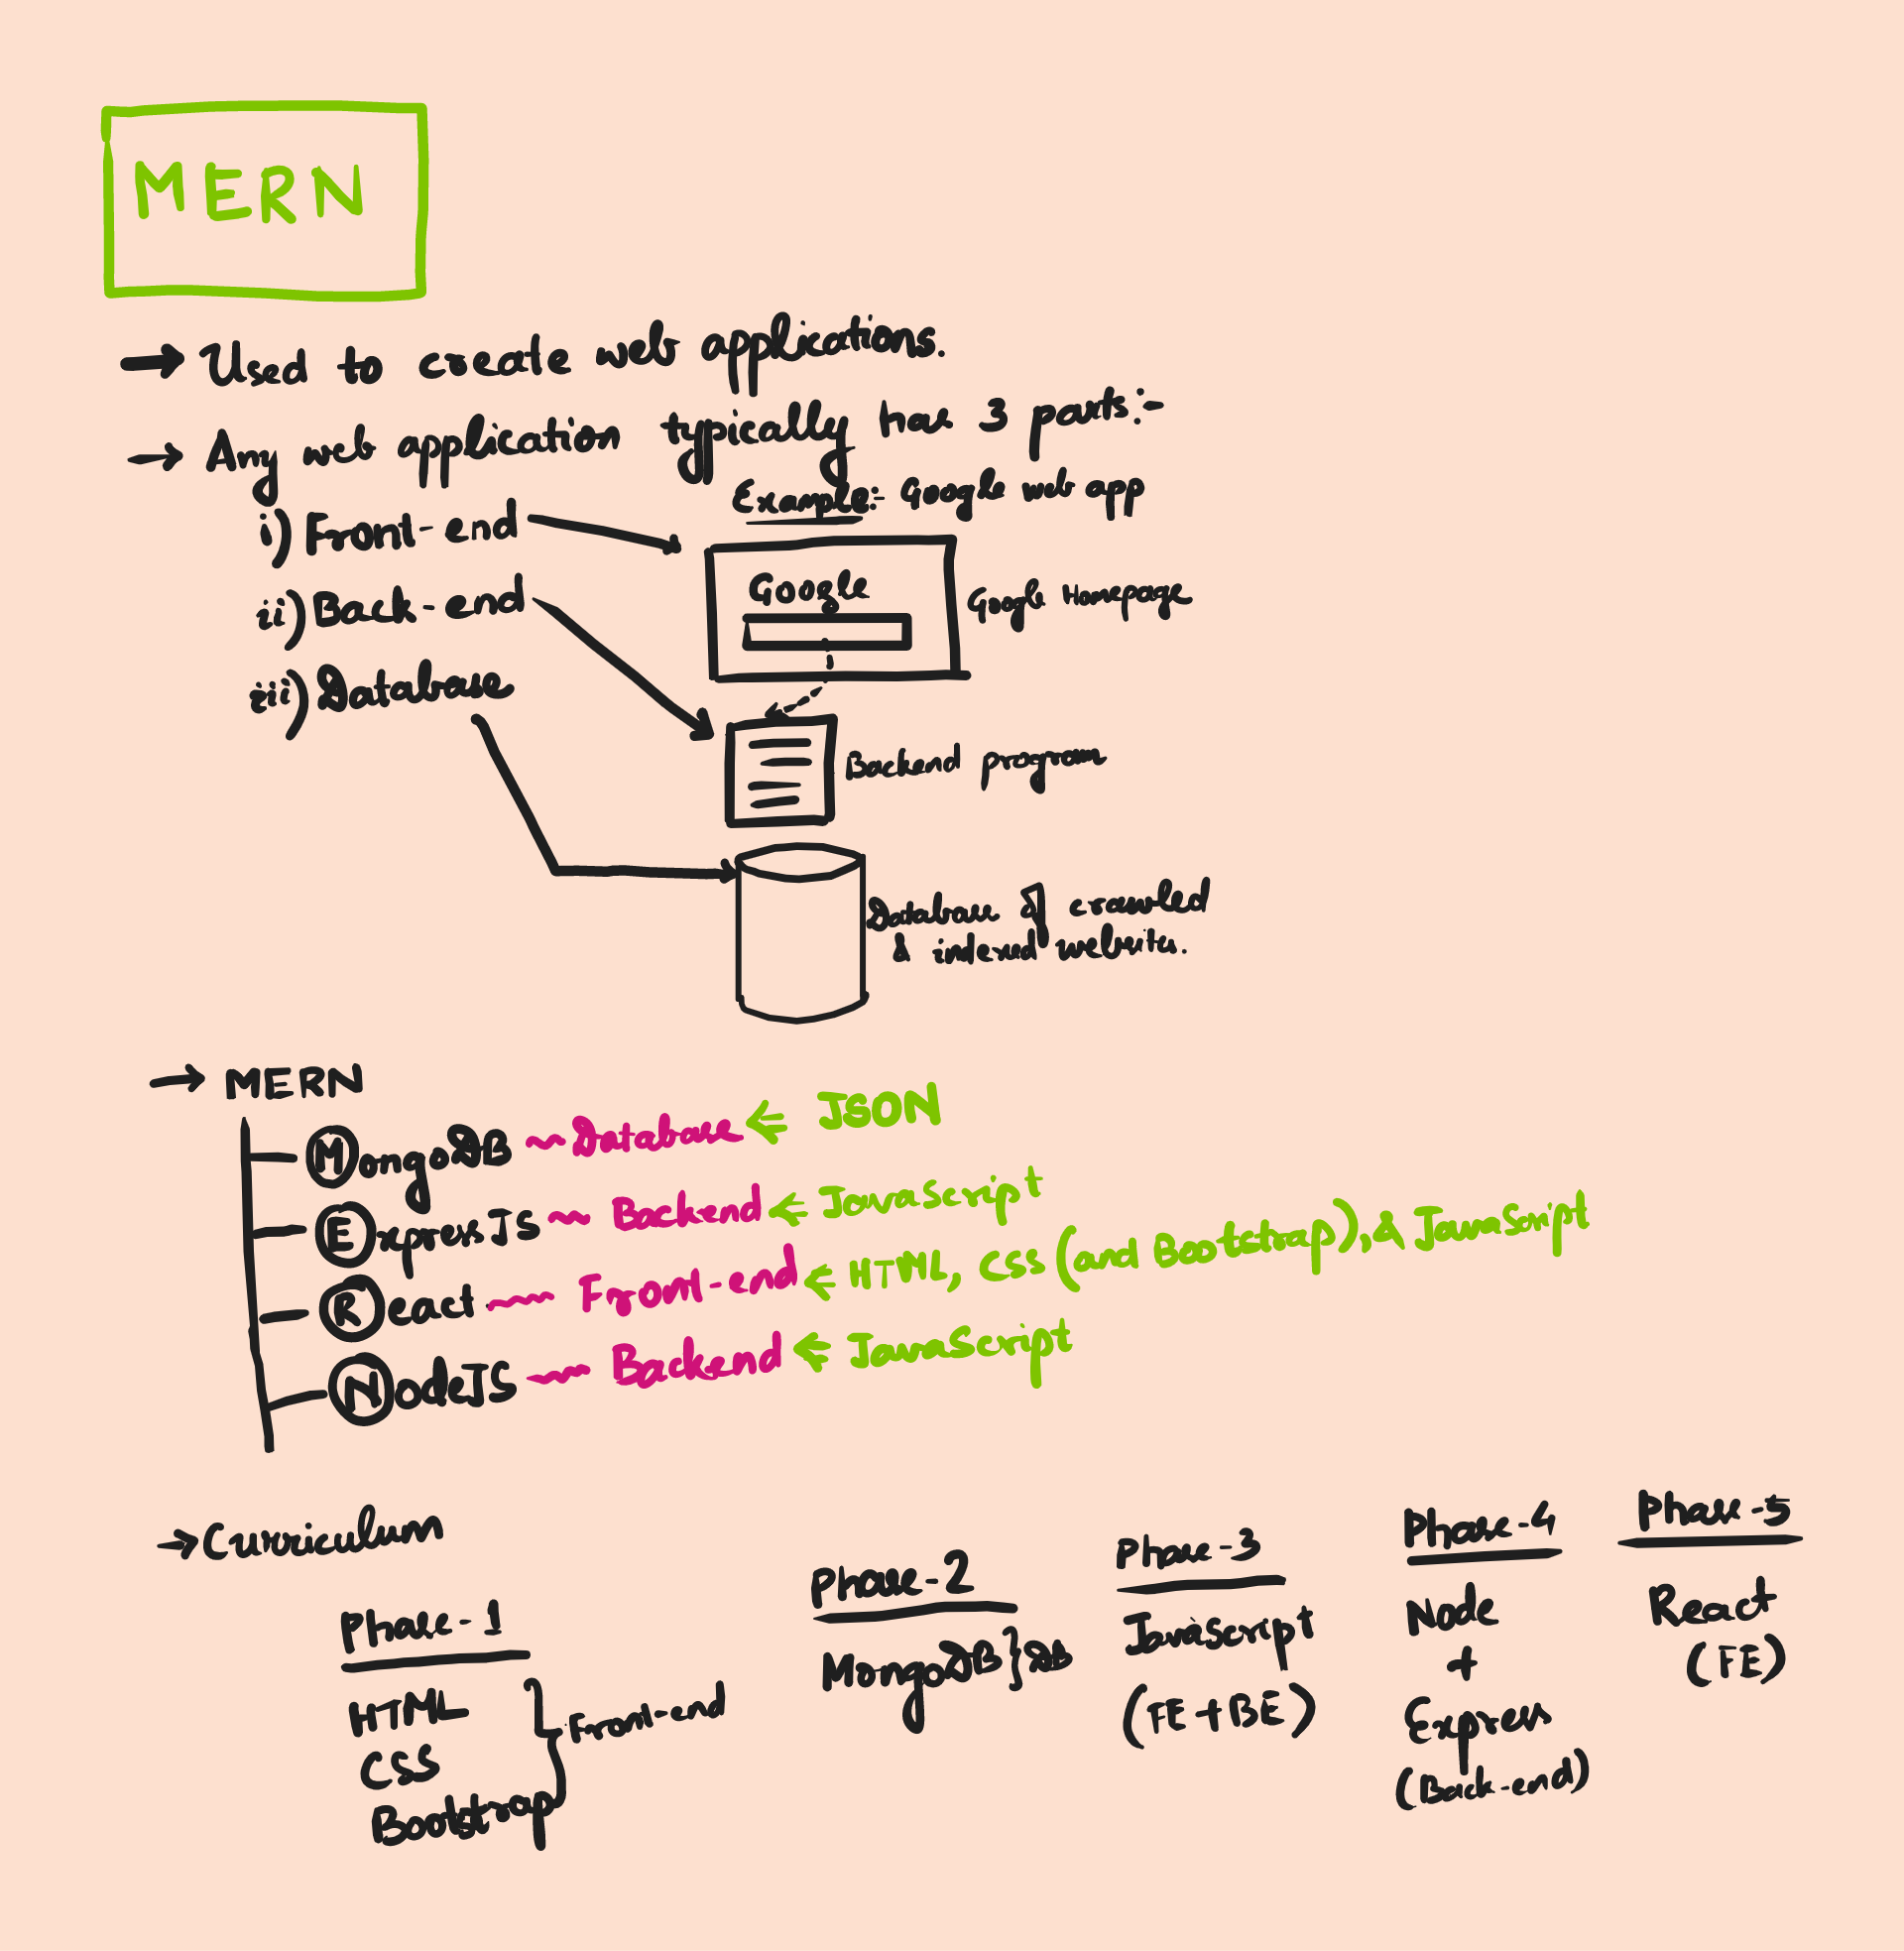 MERN
→ Used to create web applications.
→ Any web application typically has 3 parts:-
Example:- Google web app
i) Front-end
Google
Google Homepage
ii) Back-end
iii) Database
Backend program
Database of crawled
& indexed websites.
→ MERN
MongoDB ~ Database ← JSON
ExpressJS ~ Backend ← Javascript
React ~ Front-end ← HTML, CSS (and Bootstrap), & JavaScript
NodeJS ~ Backend ← JavaScript
→ Curriculum
Phase-1
HTML
CSS
Bootstrap
} Front-end
Phase-2
MongoDB } DB
Phase-3
Javascript
(FE + BE)
Phase-4
Node
+
Express
(Back-end)
Phase-5
React
(FE)